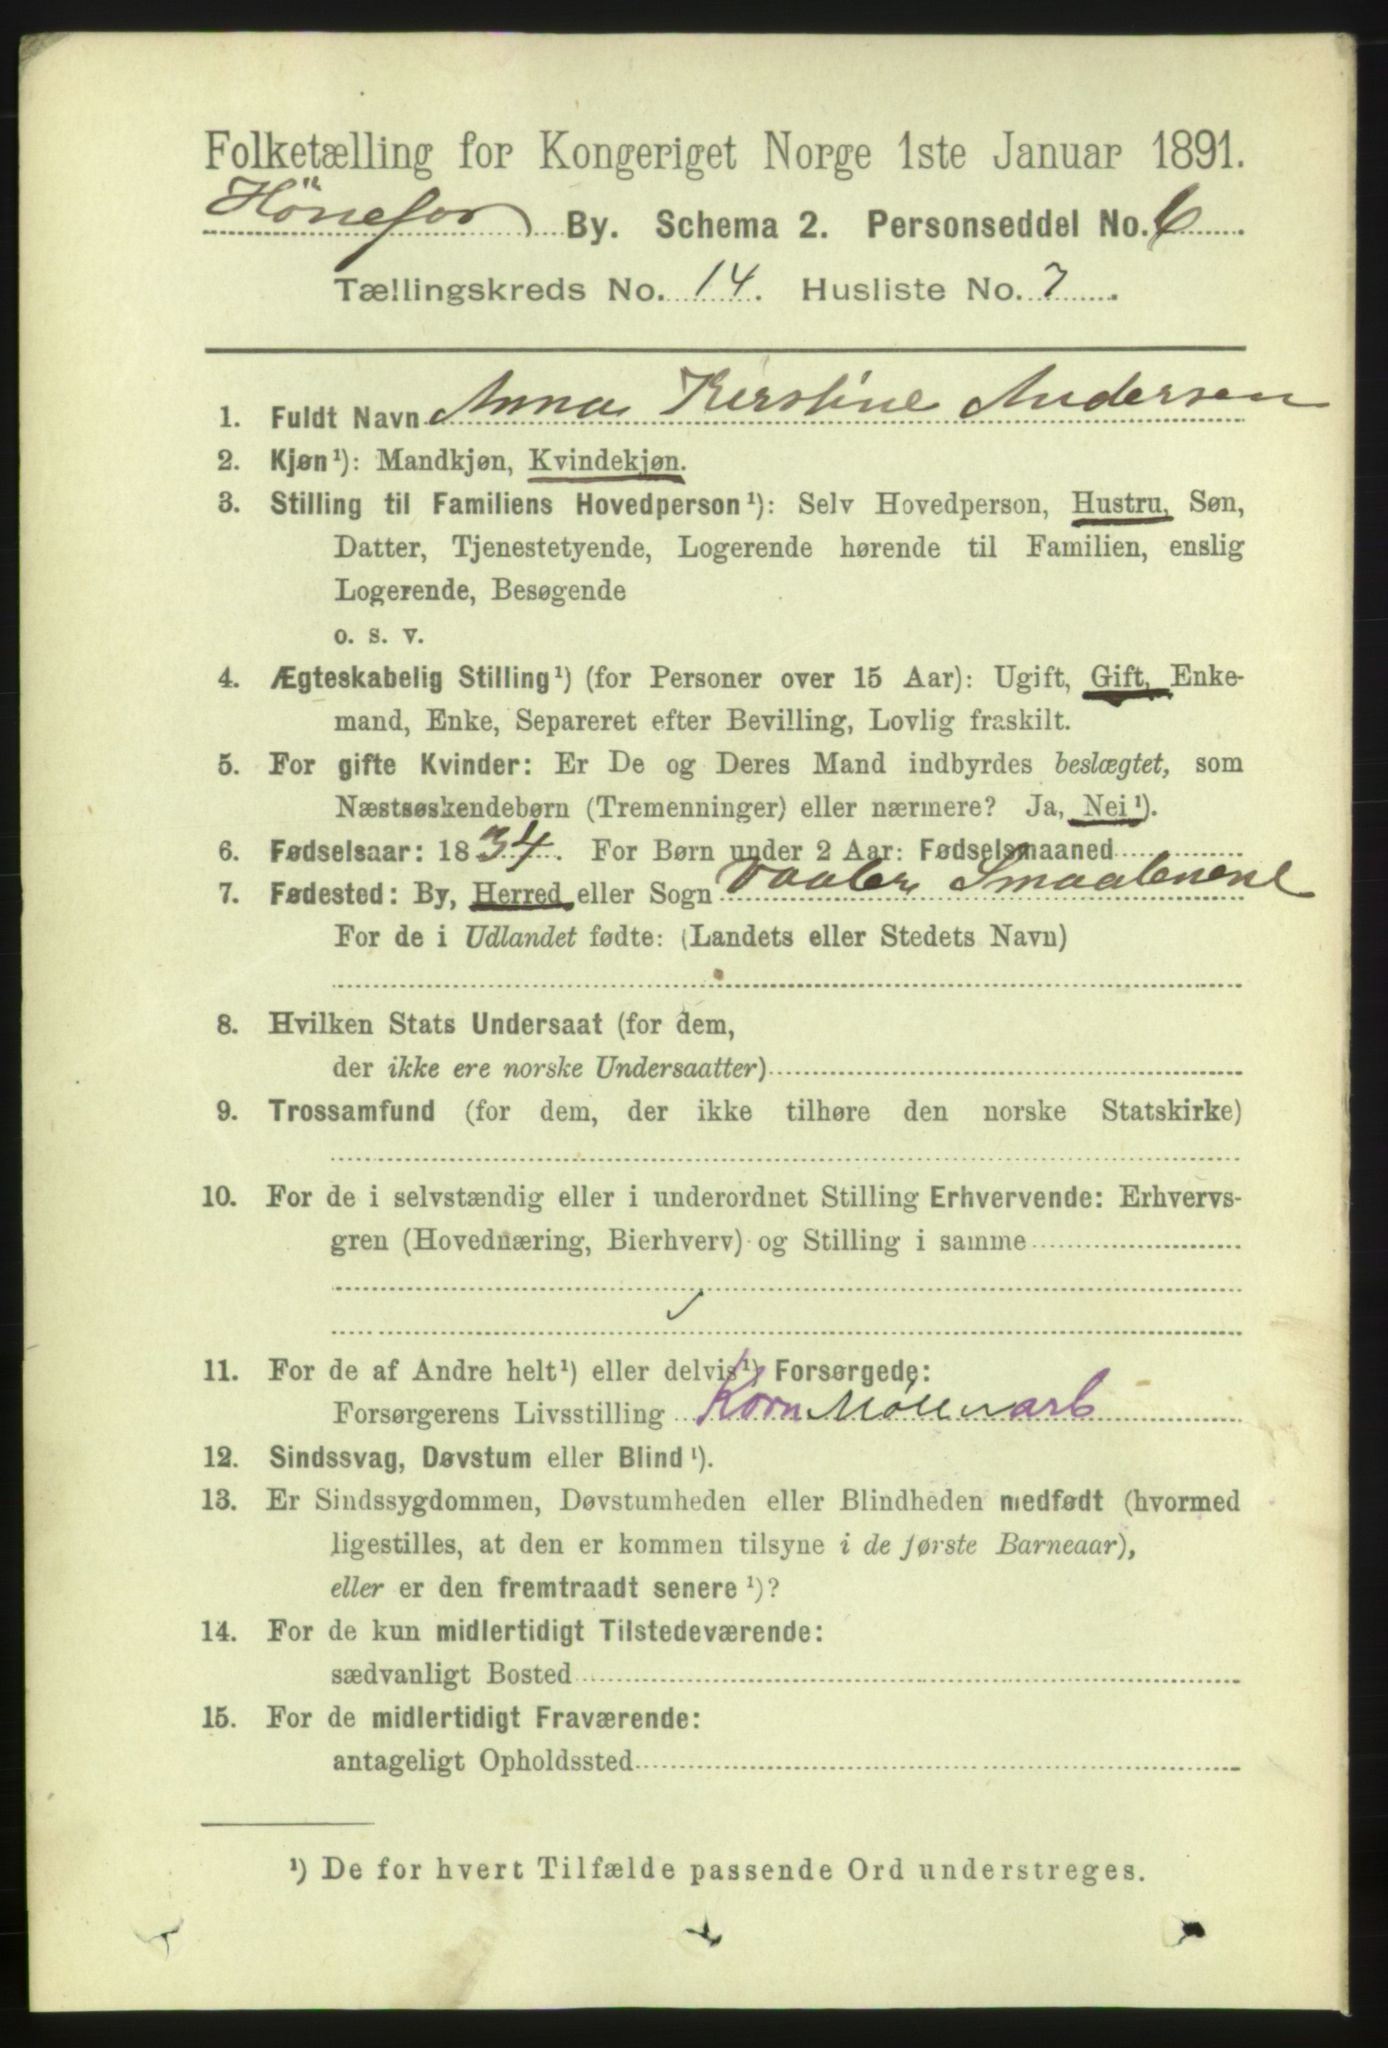 Folketælling for Kongeriget Norge 1ste Januar 1891.
Hönefos By. Schema 2. Personseddel No. 6
Tællingskreds No. 14. Husliste No. 7
1. Fuldt Navn Anna Kirstine Andersen
2. Kjøn¹): Mandkjøn, Kvindekjøn.
3. Stilling til Familiens Hovedperson¹): Selv Hovedperson, Hustru, Søn,
Datter, Tjenestetyende, Logerende hørende til Familien, enslig
Logerende, Besøgende
o. s. v.
4. Ægteskabelig Stilling¹) (for Personer over 15 Aar): Ugift, Gift, Enke-
mand, Enke, Separeret efter Bevilling, Lovlig fraskilt.
5. For gifte Kvinder: Er De og Deres Mand indbyrdes beslægtet, som
Næstsøskendebørn (Tremenninger) eller nærmere? Ja, Nei¹).
6. Fødselsaar: 1834. For Børn under 2 Aar: Fødselsmaaned
7. Fødested: By, Herred eller Sogn Vaaler Smaalenene
For de i Udlandet fødte: (Landets eller Stedets Navn)
8. Hvilken Stats Undersaat (for dem,
der ikke ere norske Undersaatter)
9. Trossamfund (for dem, der ikke tilhøre den norske Statskirke)
10. For de i selvstændig eller i underordnet Stilling Erhvervende: Erhvervs-
gren (Hovednæring, Bierhverv) og Stilling i samme
11. For de af Andre helt¹) eller delvis¹) Forsørgede:
Forsørgerens Livsstilling Korn Möllerarb
12. Sindssvag, Døvstum eller Blind¹).
13. Er Sindssygdommen, Døvstumheden eller Blindheden medfødt (hvormed
ligestilles, at den er kommen tilsyne i de første Barneaar),
eller er den fremtraadt senere¹)?
14. For de kun midlertidigt Tilstedeværende:
sædvanligt Bosted
15. For de midlertidigt Fraværende:
antageligt Opholdssted
¹) De for hvert Tilfælde passende Ord understreges.